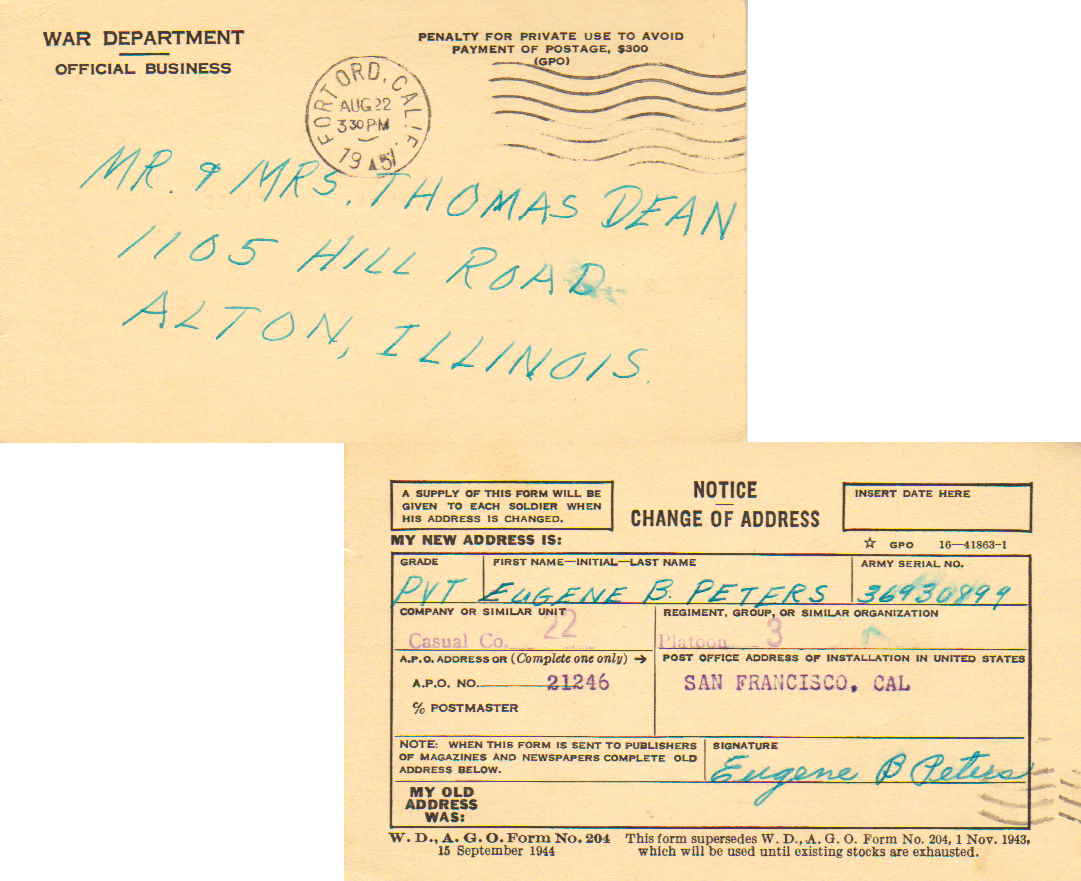 WAR DEPARTMENT
OFFICIAL BUSINESS
PENALTY FOR PRIVATE USE TO AVOID
PAYMENT OF POSTAGE, $300
(GPO)
FORT ORD, CALIF.
AUG 22
3 30 PM
19
MR. & MRS. THOMAS DEAN
1105 HILL ROAD
ALTON, ILLINOIS.
A SUPPLY OF THIS FORM WILL BE
GIVEN TO EACH SOLDIER WHEN
HIS ADDRESS IS CHANGED.
NOTICE
CHANGE OF ADDRESS
INSERT DATE HERE
MY NEW ADDRESS IS:
☆ GPO 16—41863-1
GRADE
FIRST NAME—INITIAL—LAST NAME
ARMY SERIAL NO.
PVT EUGENE B. PETERS 36930899
COMPANY OR SIMILAR UNIT
REGIMENT, GROUP, OR SIMILAR ORGANIZATION
Casual Co. 22
Platoon 3
A.P.O. ADDRESS OR (Complete one only) →
POST OFFICE ADDRESS OF INSTALLATION IN UNITED STATES
A.P.O. NO. 21246
SAN FRANCISCO, CAL
% POSTMASTER
NOTE: WHEN THIS FORM IS SENT TO PUBLISHERS
OF MAGAZINES AND NEWSPAPERS COMPLETE OLD
ADDRESS BELOW.
SIGNATURE
Eugene B Peters
MY OLD
ADDRESS
WAS:
W. D., A. G. O. Form No. 204
15 September 1944
This form supersedes W. D., A. G. O. Form No. 204, 1 Nov. 1943,
which will be used until existing stocks are exhausted.